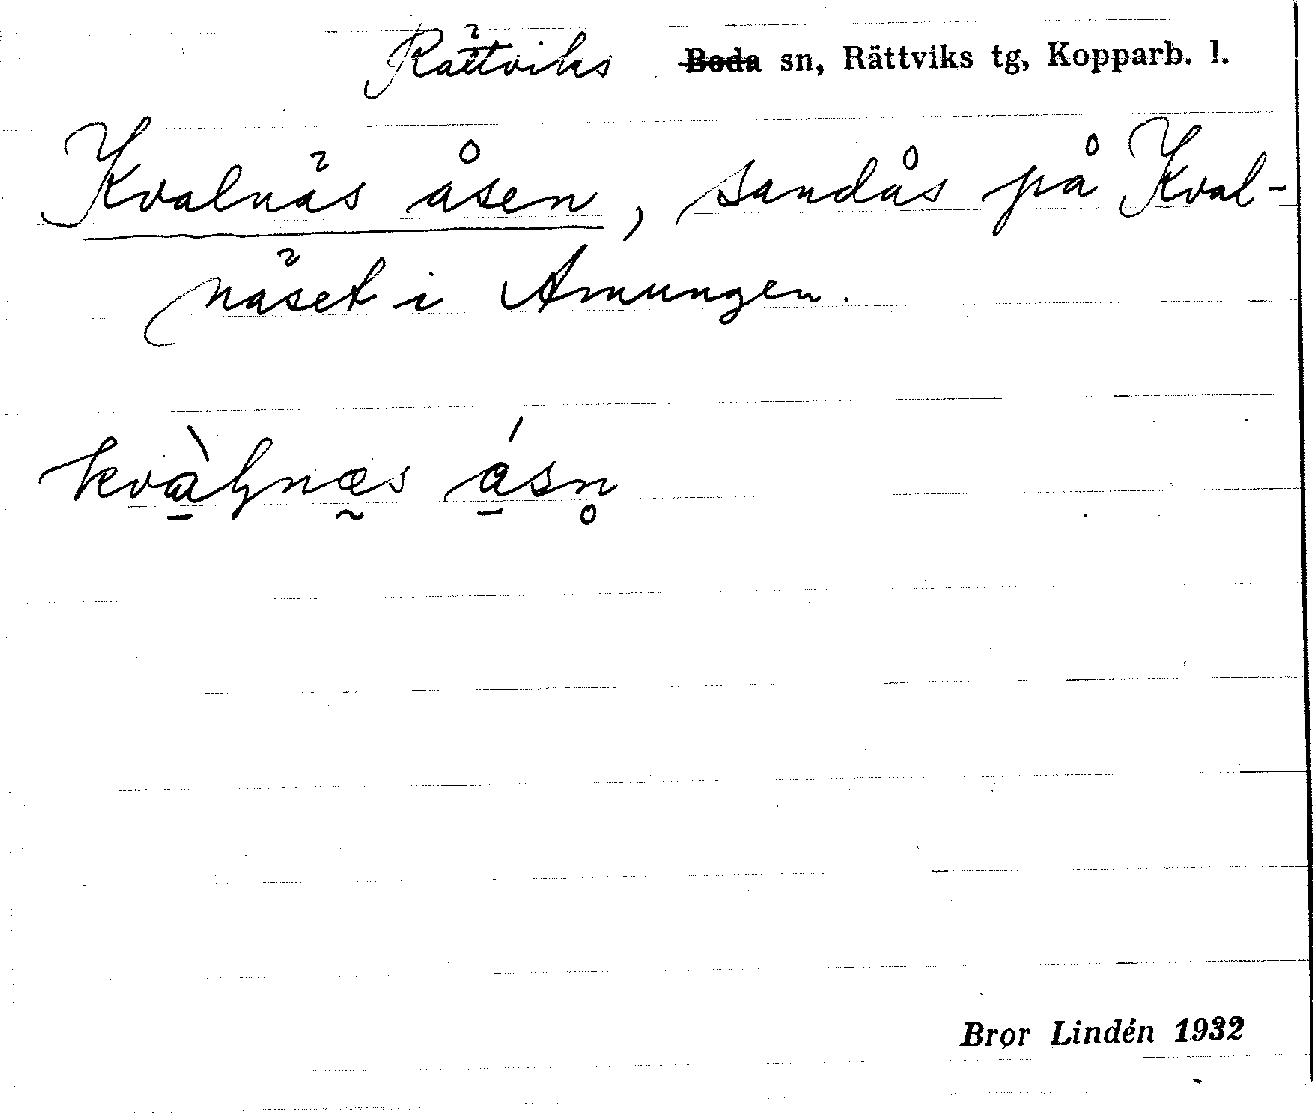 Rättviks Boda sn, Rättviks tg, Kopparb. l.
Kvalnäs åsen, sandås på Kval-
näset i Amungen.
kvàl̥næs ásn̥
Bror Lindén 1932